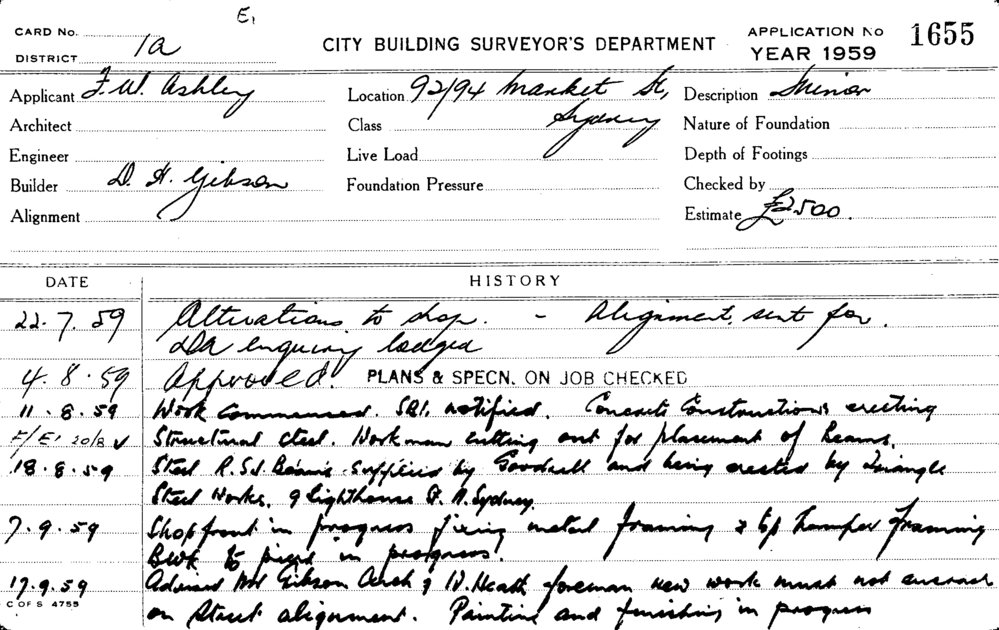 E,
CARD No.
DISTRICT 1a
CITY BUILDING SURVEYOR'S DEPARTMENT
APPLICATION No 1655
YEAR 1959
Applicant F. W. Ashley
Location 92/94 Market St, Sydney
Description Minor
Architect
Class
Nature of Foundation
Engineer
Live Load
Depth of Footings
Builder D. H. Gibson
Foundation Pressure
Checked by
Alignment
Estimate £2500.
DATE HISTORY
22.7.59 Alterations to shop. - Alignment sent for.
DA enquiry lodged
4.8.59 Approved. PLANS & SPECN. ON JOB CHECKED
11.8.59 Work Commenced. notified. Concrete Constructions erecting
F/E, 20/8 ✓ Structural Steel. Workman cutting out for placement of Beams.
18.8.59 Steel R.S.J. Beams supplied by and being erected by Triangle
Steel Works, 9 Lighthouse St. N. Sydney.
7.9.59 Shopfront in progress fixing metal framing & top hamper framing
Bwk to in progress.
17.9.59 Advised Mr Gibson Arch & W. Heath foreman new work must not encroach
C OF S 4755
on Street alignment. Painting and finishing in progress